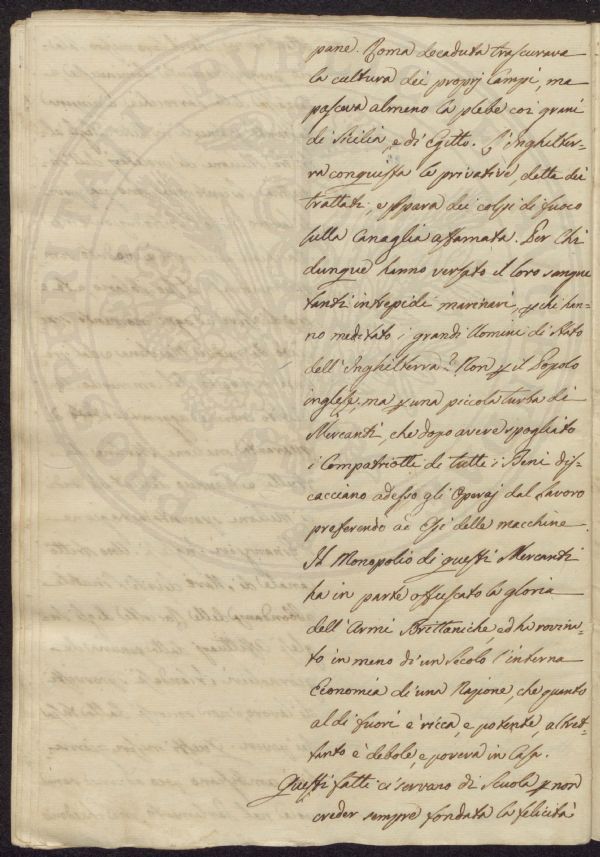 pane. Roma decaduta trascurava
la cultura dei proprj campi, ma
pasceva almeno la plebe coi grani
di Sicilia, e di Egitto. L'Inghilter-
ra conquista le privative, detta dei
trattati, e spara dei colpi di fuoco
sulla Canaglia affamata. Per Chi
dunque hanno versato il loro sangue
tanti intrepidi marinari, p chi han-
no meditato i grandi Uomini di Stato
dell'Inghilterra? Non p il Popolo
inglese, ma p una piccola turba di
Mercanti, che dopo avere spogliato
i Compatriotti di tutti i Beni dis-
cacciano adesso gli Operaj dal Lavoro
preferendo ad Essi delle macchine
Il Monopolio di questi Mercanti
ha in parte offuscato la gloria
dell'Armi Brittaniche ed ha rovina-
to in meno di un Secolo l'interna
Economia di una Nazione, che quanto
al di fuori è ricca, e potente, altret-
tanto è debole, e povera in Casa.
Questi fatti ci servano di Scuola p non
creder sempre fondata la felicità